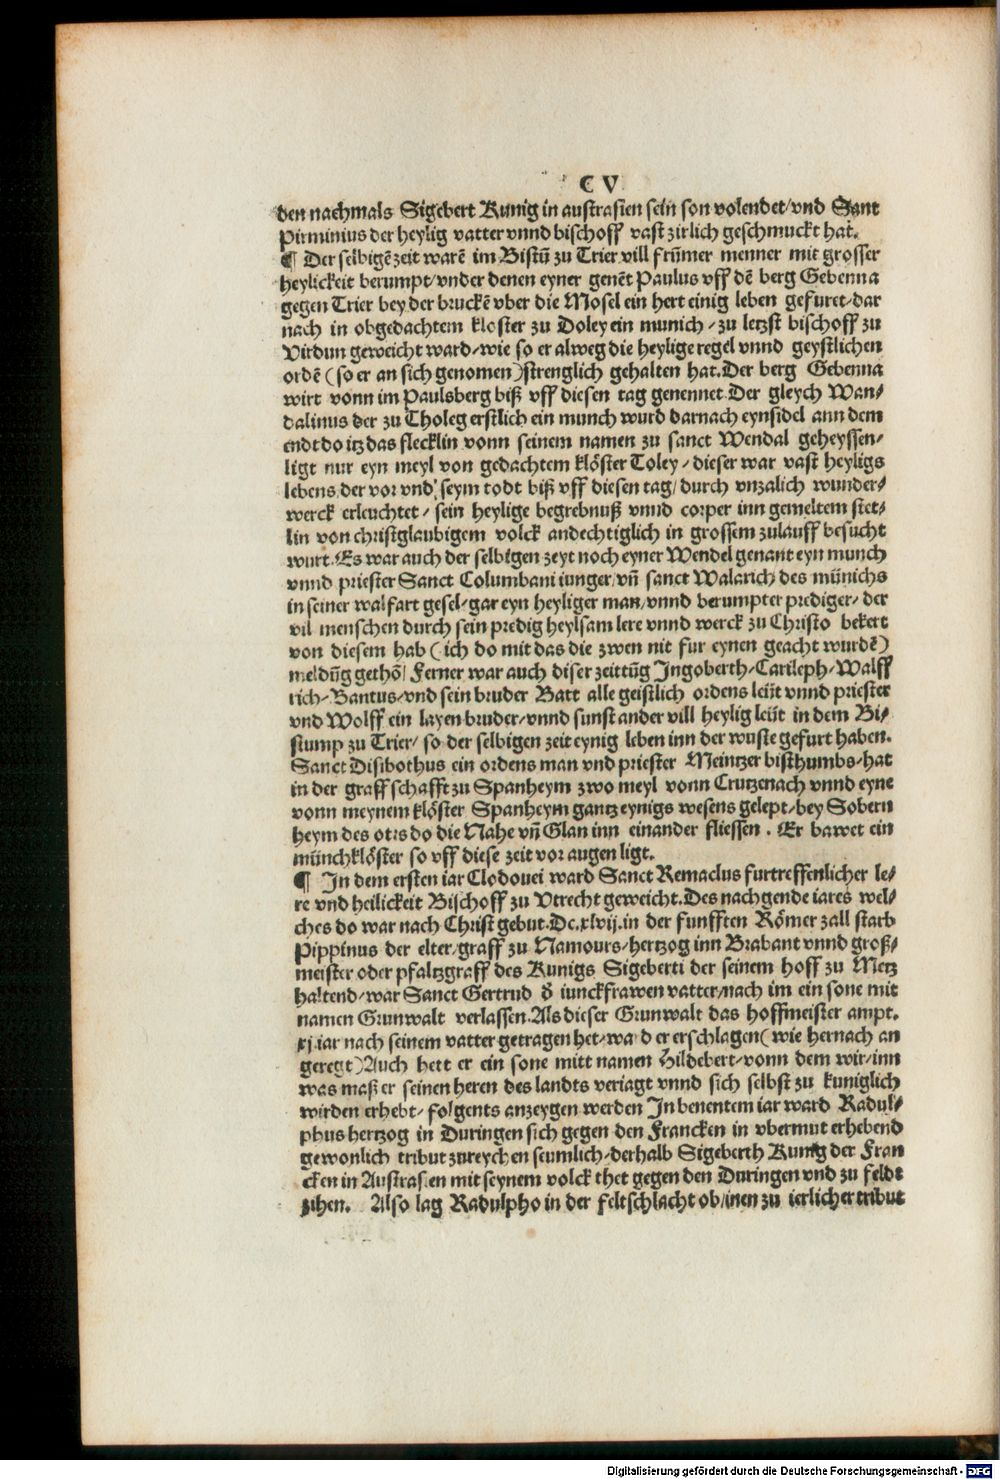 C V
den nachmals Sigebert Kunig in austrasien sein son volendet/vnd Sant
Pirminius der heylig vatter vnnd bischoff vast zirlich geschmuckt hat.
¶ Der selbigē zeit warē im Bistū zu Trier vill frūmer menner mit grosser
heylickeit berumpt/vnder denen eyner genēt Paulus vff dē berg Gebenna
gegen Trier bey der bruckē vber die Mosel ein hert einig leben gefuret/dar
nach in obgedachtem kloster zu Doley ein munich/zu letzst bischoff zu
Virdun geweicht ward/wie so er alweg die heylige regel vnnd geystlichen
ordē (so er an sich genomen) strenglich gehalten hat. Der berg Gebenna
wirt vonn im Paulsberg biß vff diesen tag genennet. Der gleych Wan⸗
dalinus der zu Tholeg erstlich ein munch wurd darnach eynsidel ann dem
endt do itz das flecklin vonn seinem namen zu sanct Wendal geheyssen/
ligt nur eyn meyl von gedachtem klöster Toley/dieser war vast heyligs
lebens der vor vnd seym todt biß vff diesen tag/durch vnzalich wunder⸗
werck erleuchtet/sein heylige begrebnuß vnnd corper inn gemeltem stet⸗
lin von christglaubigem volck andechtiglich in grossem zulauff besucht
wurt. Es war auch der selbigen zeyt noch eyner Wendel genant eyn munch
vnnd priester Sanct Columbani iunger/vñ sanct Walarich/des münichs
in seiner walfart gesel/gar eyn heyliger man/vnnd berumpter prediger/der
vil menschen durch sein predig heylsam lere vnnd werck zu Christo bekert
von diesem hab (ich do mit das die zwen nit fur eynen geacht wurdē)
meldūg gethō/Ferner war auch diser zeittūg Ingoberth/Carileph/Walff
rich/Bantus/vnd sein bruder Batt alle geistlich ordens leüt vnnd priester
vnd Wolff ein layen bruder/vnnd sunst ander vill heylig leüt in dem Bi⸗
stump zu Trier/so der selbigen zeit eynig leben inn der wuste gefurt haben.
Sanct Disibothus ein ordens man vnd priester Meintzer bisthumbs/hat
in der graffschafft zu Spanheym zwo meyl vonn Crutzenach vnnd eyne
vonn meynem klöster Spanheym gantz eynigs wesens gelept/bey Sobern
heym des orts do die Nahe vñ Glan inn einander fliessen. Er bawet ein
münchklöster so vff diese zeit vor augen ligt.
¶ In dem ersten iar Clodouei ward Sanct Remaclus furtreffenlicher le⸗
re vnd heilickeit Bischoff zu Vtrecht geweicht. Des nachgende iares wel⸗
ches do war nach Christ geburt. Dc.xlvij. in der funfften Römer zall starb
Pippinus der elter/graff zu Namours/hertzog inn Brabant vnnd groß⸗
meister oder pfaltzgraff des Kunigs Sigeberti der seinem hoff zu Metz
haltend/war Sanct Gertrud ð iunckfrawen vatter/nach im ein sone mit
namen Grunwalt verlassen. Als dieser Grunwalt das hoffmeister ampt.
xj. iar nach seinem vatter getragen het/wa d er erschlagen (wie hernach an
geregt) Auch hett er ein sone mitt namen Hildebert/vonn dem wir/inn
was maß er seinen heren des landts veriagt vnnd sich selbst zu kuniglich
wirden erhebt/folgents anzeygen werden In benentem iar ward Radul⸗
phus hertzog in Duringen sich gegen den Francken in vbermut erhebend
gewonlich tribut zureychen seumlich/derhalb Sigeberth Kunig der Fran
cken in Austrasien mit seynem volck thet gegen den Duringen vnd zu feldt
zihen. Also lag Radulpho in der feltschlacht ob/inen zu ierlicher tribut
Digitalisierung gefördert durch die Deutsche Forschungsgemeinschaft - DFG